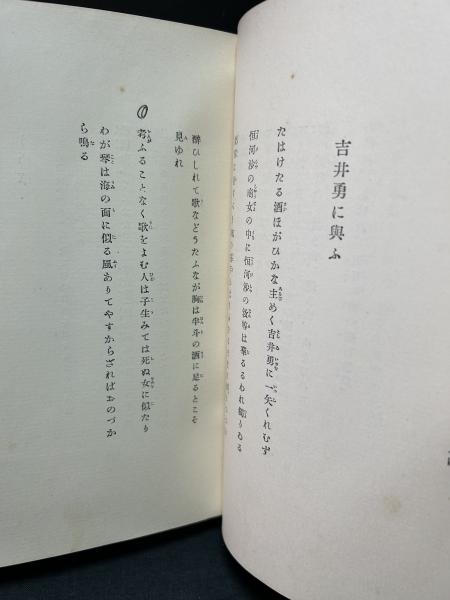 吉井勇に與ふ
たはけたる酒ほがひかな主めく吉井勇に一矢くれむず
恒河沙の南女の中に恒河沙の
われ
醉ひしれて歌などうたふなが胸は半斗の酒に足るとこそ
見ゆれ
考ふることなく歌をよむ人は子生みては死ぬ女に似たり
わが琴は海の面に似る風ありてやすからざればおのづか
ら鳴る